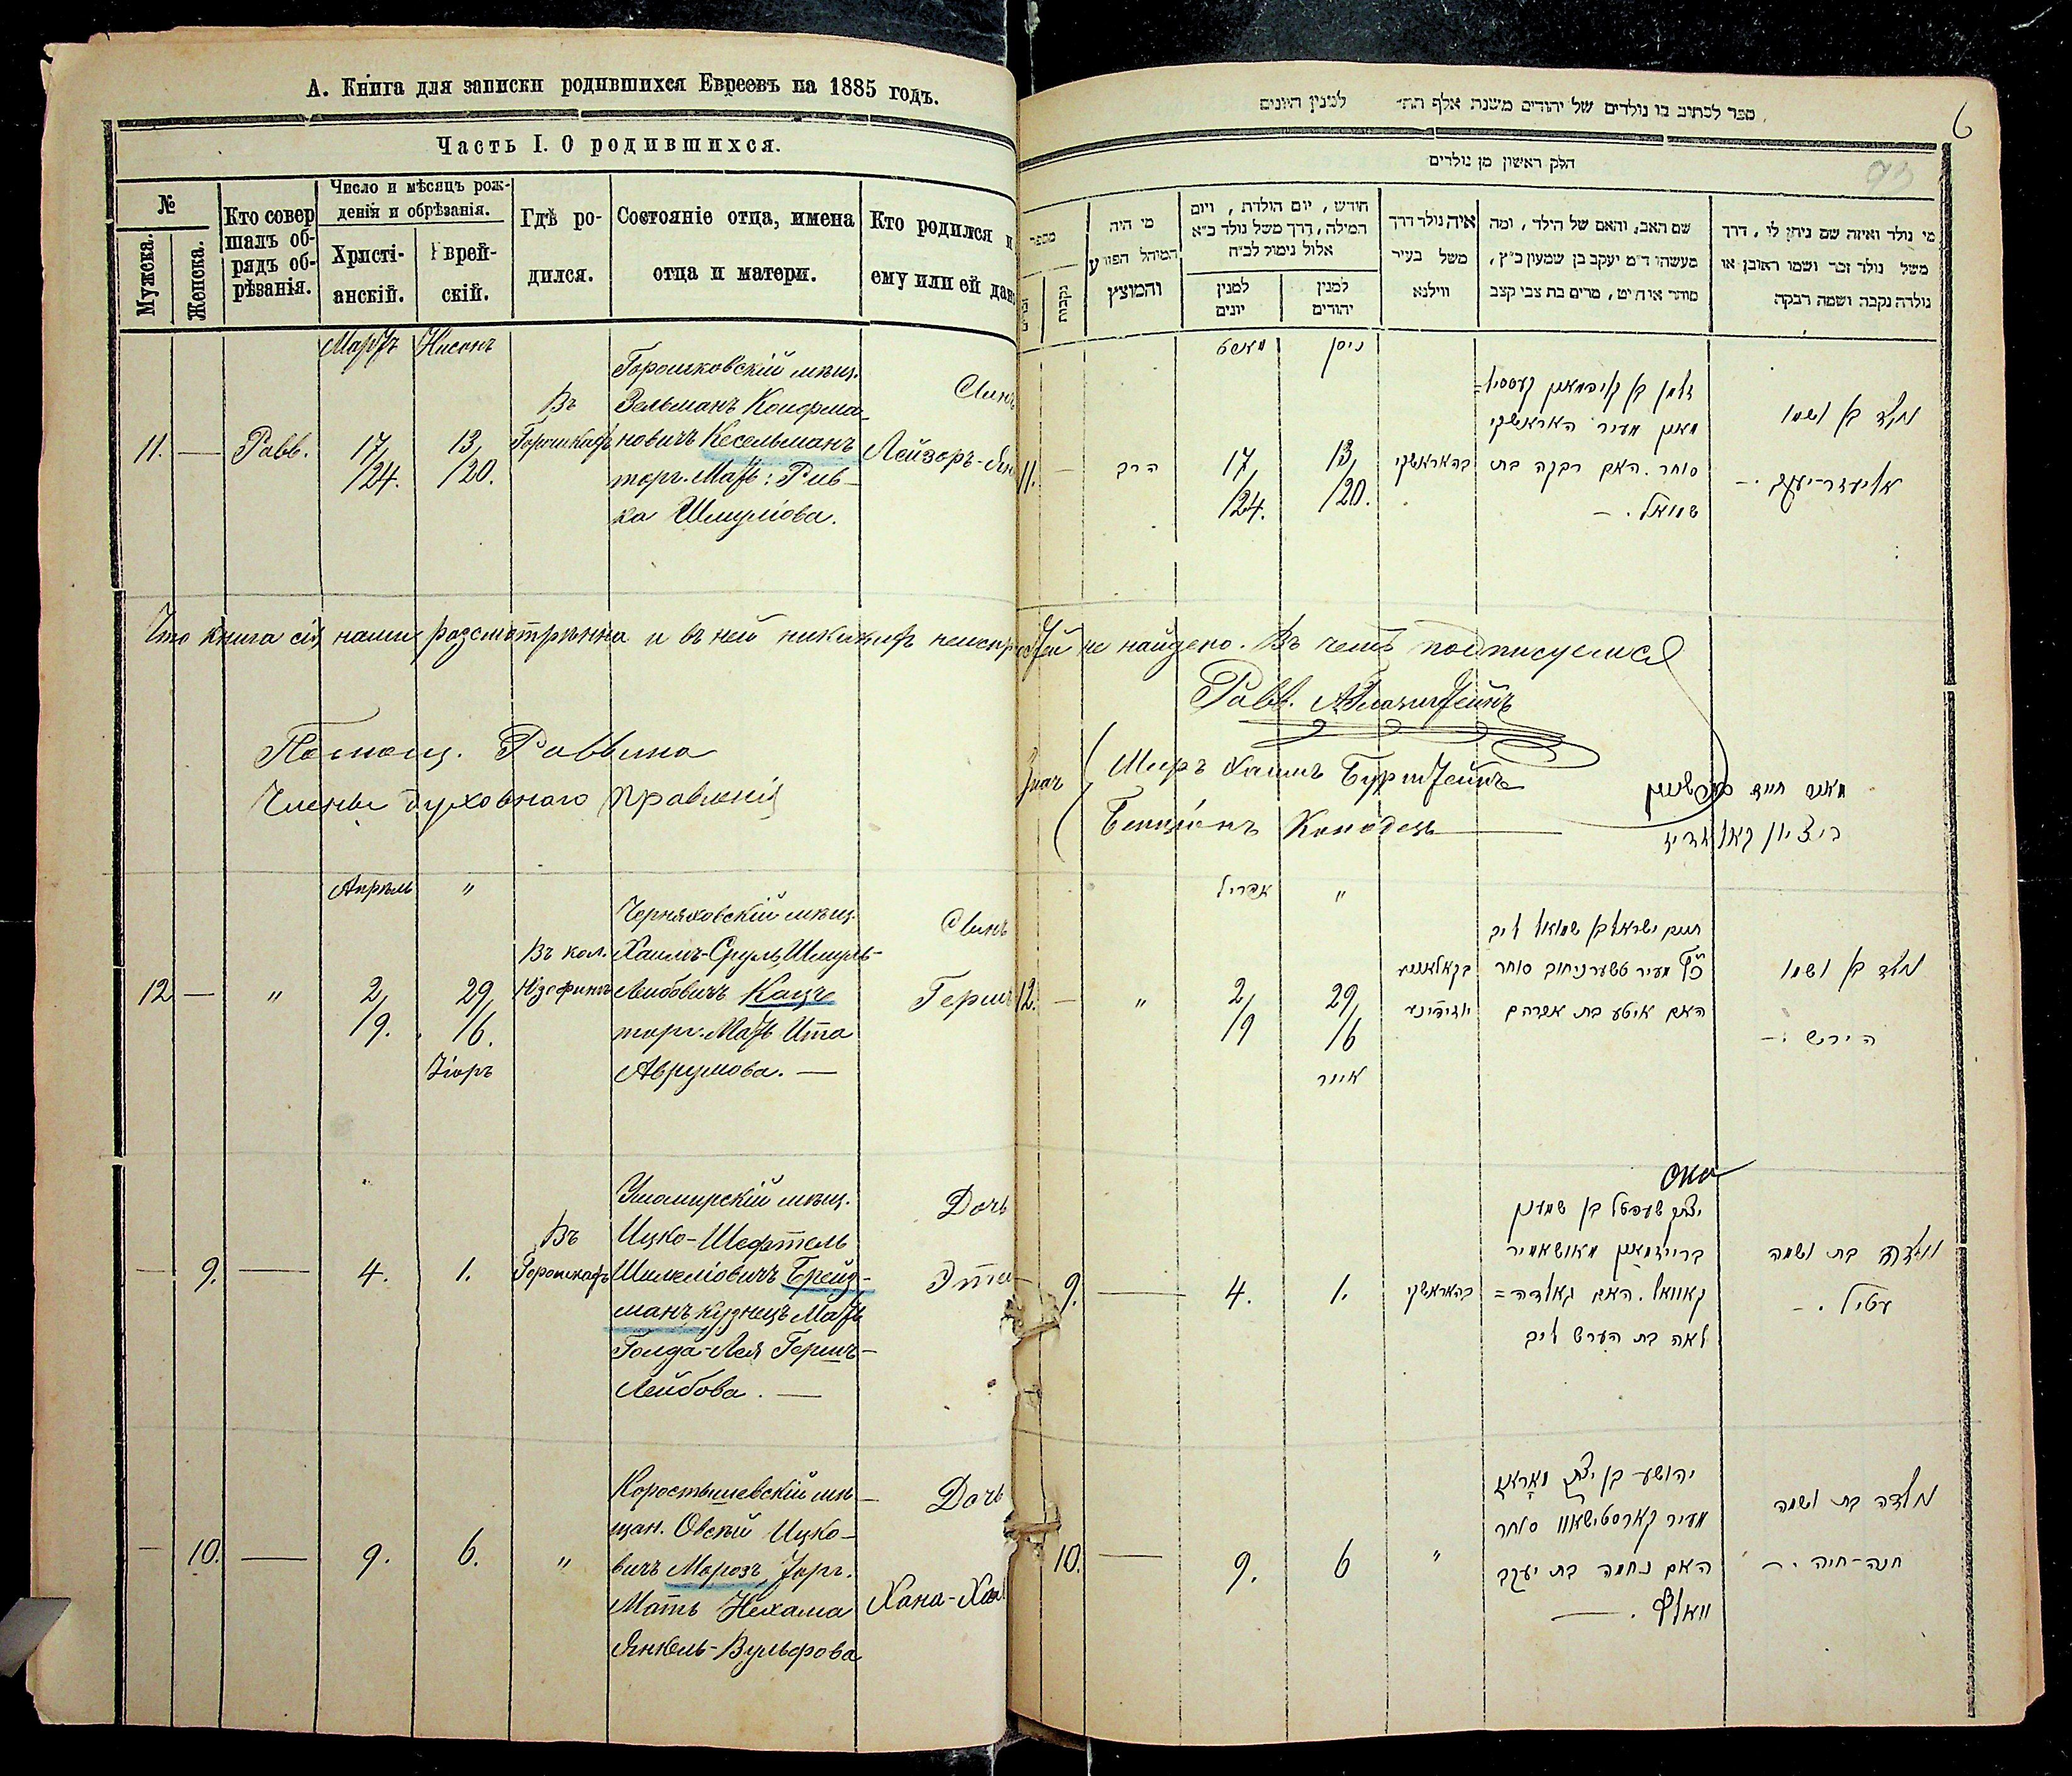 А. Книга для записки родившихся Евреевъ на 1885 годъ.
Часть I. О родившихся.
№
Мужеска.
Женска.
Кто совер
шалъ об-
рядъ об-
рѣзанія.
Число и мѣсяцъ рож-
денія и обрѣзанія.
Христі-
анскій.
Еврей-
скій.
Гдѣ ро-
дился.
Состояніе отца, имена
отца и матери.
Кто родился и
ему или ей дано
Мартъ Нисонъ
11. — Равв. 17/24. 13/20.
Въ
Горошкахъ
Горошковскій мѣщ.
Зельманъ Кой
новичъ Кесельманъ
торг. Мать: Рив-
ка Шмуліова.
Сынъ
Лейзоръ-Ян
Что книга сія нами разсмотрѣнна и въ ней никакихъ неиспр
Помощ. Раввина
Члены духовнаго правленія
Апрѣль "
12 — " 2/9. 29/6.
Іюръ
Въ кол.
Юзефинъ
Черняховскій мѣщ.
Хаимъ-Сруль Шмуль-
Лейбовичъ Кацъ
торг. Мать Ита
Аврумова. —
Сынъ
Гершъ
— 9. — 4. 1.
Въ
Горошкахъ
Ушомирскій мѣщ.
Ицко-Шефтель
Шмеліовичъ Брейд-
манъ кузнецъ Мать
Голда-Лея Гершъ-
Лейбова. —
Дочь
Этя
— 10. — 9. 6. "
Коростышевскій мѣ-
щан. Овсѣй Ицко-
вичъ Морозъ, Торг.
Мать Нехама
Янкель-Вульфова
Дочь
Хана-Хая
6
93
ספר לכתוב בו נולדים של יהודים משנת אלף תת״ למנין היונים
חלק ראשון מן נולדים
מספר
נקבות
מי היה
המוהל הפורע
והמוצץ
חודש, יום הולדת, ויום
המילה, דרך משל נולד כ״א
אלול נימול לכ״ח
למנין
יונים
למנין
יהודים
איה נולד דרך
משל בעיר
ווילנא
שם האב, והאם של הילד, ומה
מעשהו ד״מ יעקב בן שמעון כ״ץ,
סוחר או חייט, מרים בת צבי קצב
מי נולד ואיזה שם ניתן לו, דרך
משל נולד זכר ושמו ראובן או
נולדה נקבה ושמה רבקה
ניסן
11. — הרב 17/24. 13/20.
בהאראשקי
זלמן בן קעסיל=
מאן מעיר האראשקי
סוחר. האם רבקה בת
שמואל. —
נולד בן ושמו
אליעזר-יעקב. —
стей не найдено. Въ чемъ подписуемся
Равв.
Меръ Хаимъ Бурштейнъ
Бенціонъ
מאיר חיים בורשטיין
אפריל "
12. — " 2/9 29/6
אייר
בקאלאניע
חיים ישראל בן שמואל ליב
כ״ץ מעיר טשערניחוב סוחר
האם איטע בת אברהם
נולד בן ושמו
הירש. —
9. — 4. 1. בהאראשקי
יצחק שעפטל בן
ברייידמאן מאושאמיר
קאוואל. האם גאלדה=
לאה בת הערש ליב
נולדה בת ושמה
עטיל. —
10. — 9. 6 "
יהושע בן יצחק מאראז
מעיר קארסטישאוו סוחר
האם נחמה בת יעקב
וואלף. —
נולדה בת ושמה
חנה-חיה. —